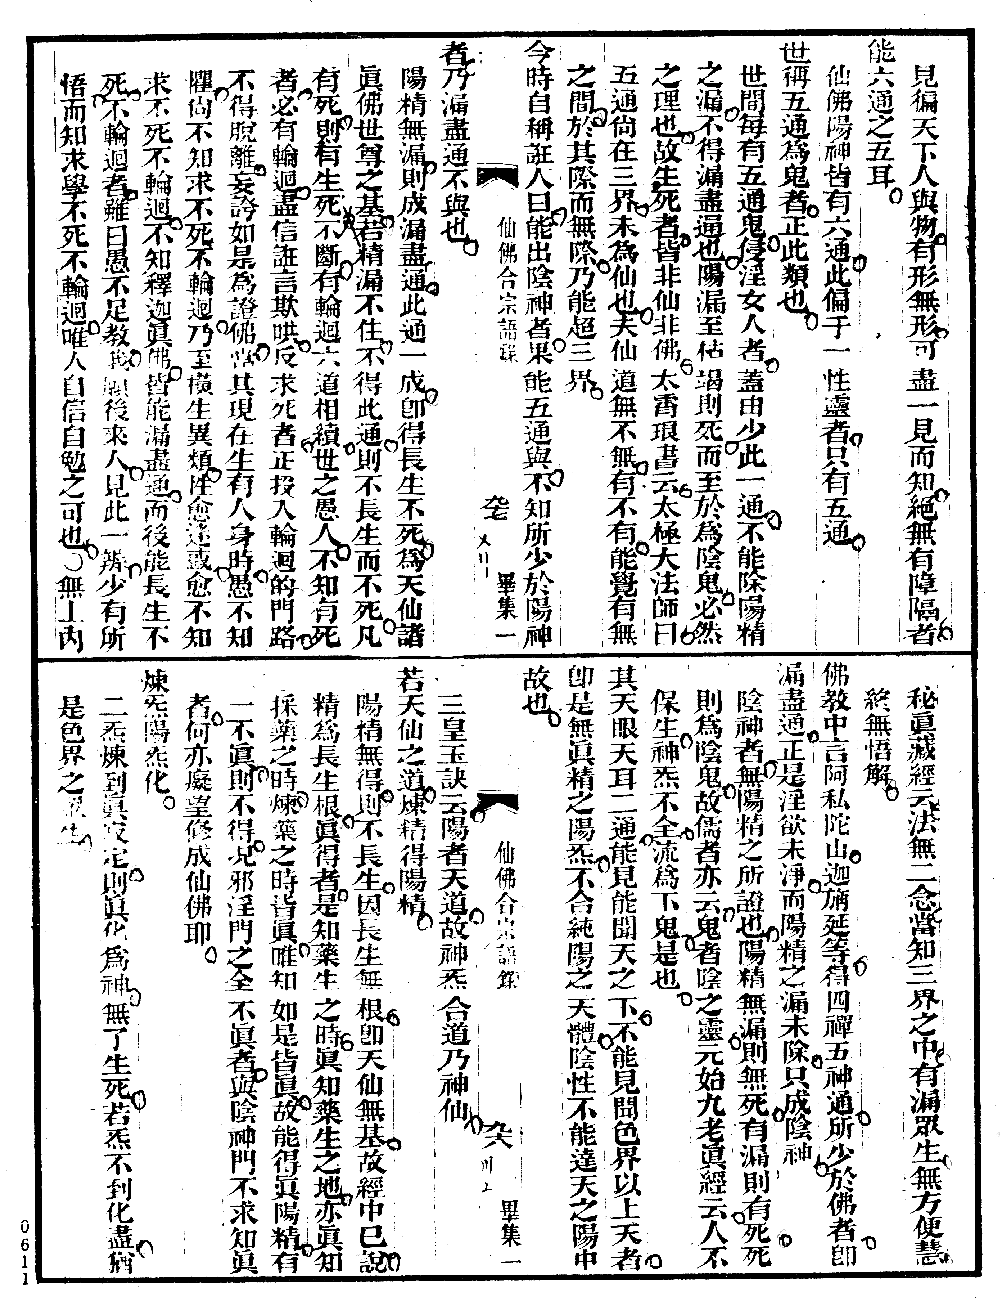 見徧天下人與物有形無形可盡一見而知絕無有障隔者
能六通之五耳
仙佛陽神皆有六通此偏于一性靈者只有五通
世稱五通為鬼者正此類也
世間每有五通鬼侵淫女人者蓋由少此一通不能除陽精
之漏不得漏盡通也陽漏至枯竭則死而至於為陰鬼必然
之理也故生死者皆非仙非佛太霄琅書云太極大法師曰
五通尚在三界未為仙也夫仙道無不無有不有能覺有無
之間於其際而無際乃能超三界
今時自稱誑人曰能出陰神者果能五通與不知所少於陽神
仙佛合宗語錄
畢集一
者乃漏盡通不與也
陽精無漏則成漏盡通此通一成卽得長生不死為天仙諸
眞佛世尊之基若精漏不住不得此通則不長生而不死凡
有死則有生死不斷有輪迴六道相續世之愚人不知有死
者必有輪迴盡信誑言欺哄反求死者正投入輪迴的門路
不得脫離妄誇如是為證佛當其現在生有人身時愚不知
懼尚不知求不死不輪迴乃至橫生異類性愈迷或愈不知
求不死不輪迴不知釋迦眞佛皆能漏盡通而後能長生不
死不輪迴者雖曰愚不足敎我願後來人見此一辨少有所
悟而知求學不死不輪迴唯人自信自勉之可也○無上內
秘眞藏經云法無二念當知三界之中有漏眾生無方便慧
終無悟解
佛教中言阿私陀山迦旃延等得四禪五神通所少於佛者卽
漏盡通正是淫欲未淨而陽精之漏未除只成陰神
陰神者無陽精之所證也陽精無漏則無死有漏則有死死
則為陰鬼故儒者亦云鬼者陰之靈元始九老眞經云人不
保生神炁不全流為下鬼是也
其天眼天耳二通能見能聞天之下不能見聞色界以上天者
卽是無眞精之陽炁不合純陽之天體陰性不能達天之陽中
故也
仙佛合宗語錄
畢集一
三皇玉訣云陽者天道故神炁合道乃神仙
若天仙之道煉精得陽精
陽精無得則不長生因長生無根卽天仙無基故經中已說
精為長生根眞得者是知藥生之時眞知藥生之地亦眞知
採藥之時煉藥之時皆眞唯知如是皆眞故能得眞陽精有
一不眞則不得况邪淫門之全不眞者與陰神門不求知眞
者何亦癡望修成仙佛耶
煉炁陽炁化
二炁煉到眞寂定則眞化為神無了生死若炁不到化盡猶
是色界之眾生
0611